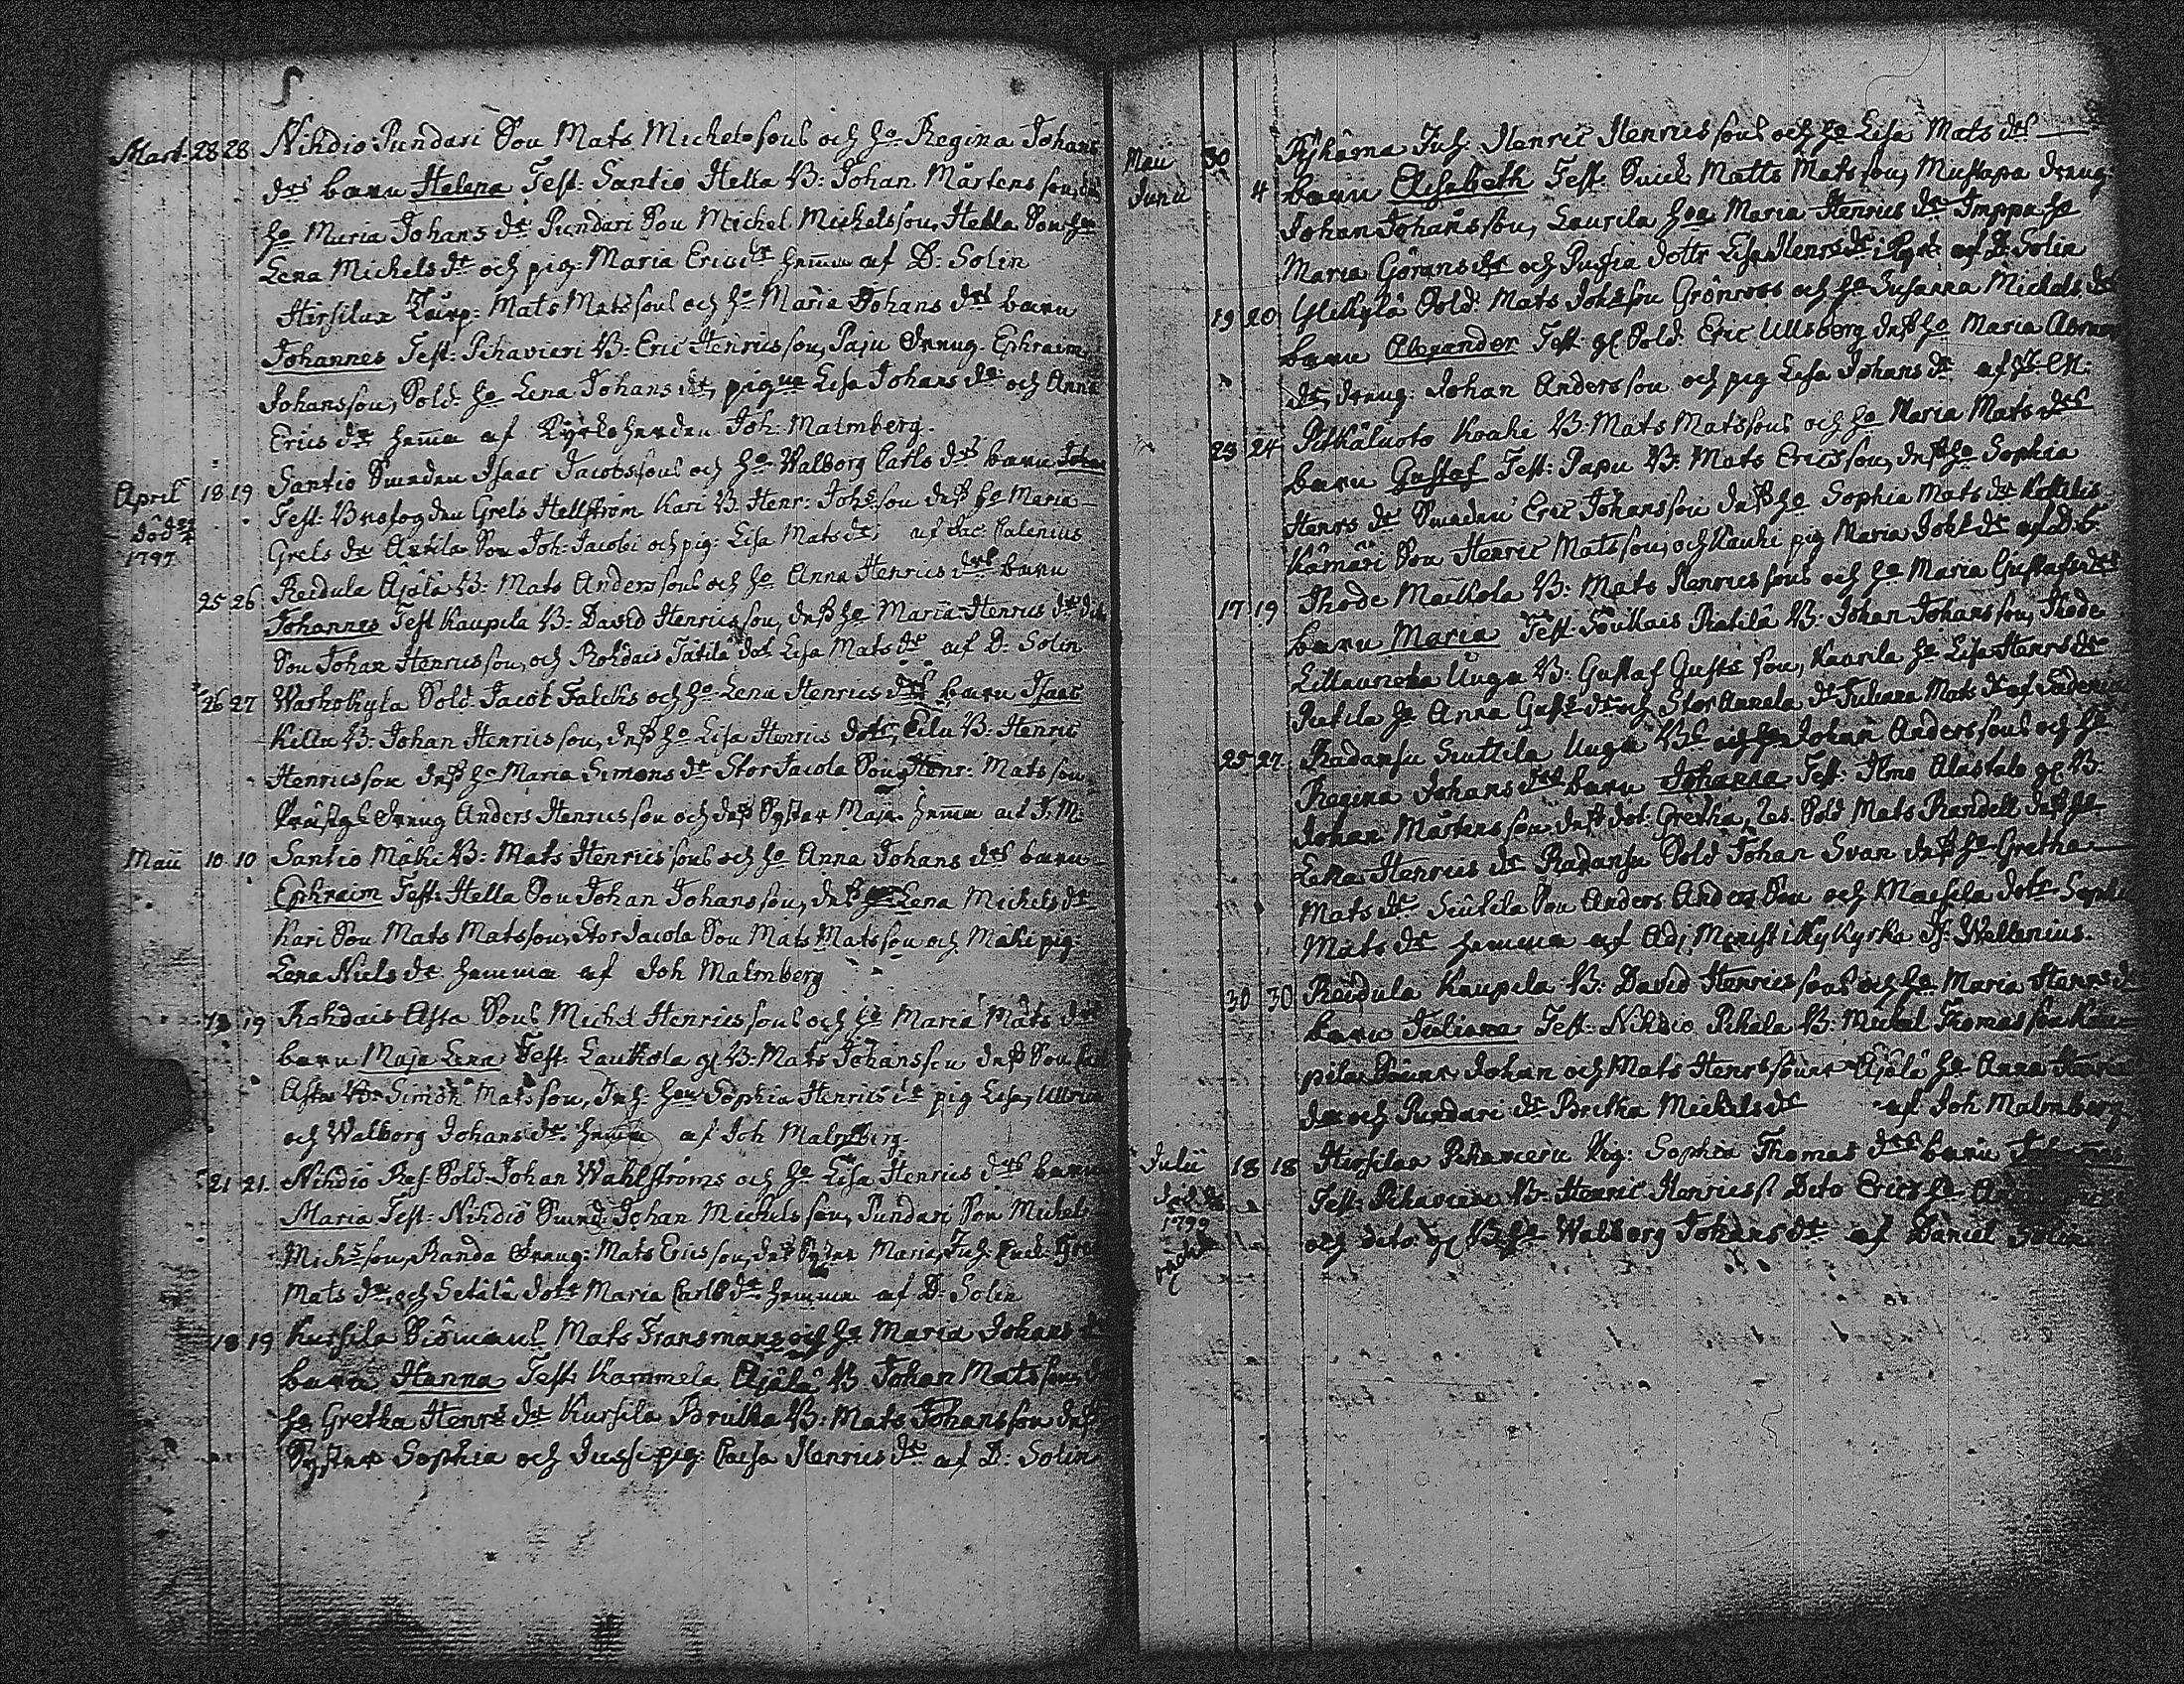 Mart 28 28 Nihdiö Pundari Son Mats Michelssons och ho Regina Johans
drs barn Helena Test: Santio Hella B: Johan Mårtensson,
ho Maria Johans dr Pundari Son Michel Michelsson, Hella Son ho
Lena Michels dr och pig: Maria Erics dr hemma af D: Solin
Hirsilux Torp: Mats Matssons och ho Maria Johans drs barn
Johannes Test: Pihavieri B: Eric Henricsson, Paju dräng Ephraim
Johansson, Sold: ho Lena Johans dr, pigna Lisa Johans dr och Anna
Erics dr hemma af Kyrkoherden Joh: Malmberg.
April 18 19 Santio Smeden Isaac Jacobssons och ho Walborg Carls drs barn Johan
död
1797
Test: Brofogden Grels Hellström Kari B. Henr: Johsson dess ho Maria
Grels dr Antila Son Joh: Jacobi och pig: Lisa Mats dr. af Jac: Calenius
25 26 Reidula Äjälä B: Mats Anderssons och ho Anna Henrics drs barn
Johannes Test Kaupila B: David Henricsson, dess ho Maria Henrics dr
Son Johan Henricsson, och Rohdais Tätilä dot Lisa Mats dr af D: Solin
26 27 Warhokylä Sold: Jacob Falcks och ho Lena Henrics drs barn Isaac
Killu B: Johan Henricsson, dess ho Lisa Henrics dotr, Eilu B: Henric
Henricsson dess ho Maria Simons dr StorJacola Son Henr: Matsson
Prästgs dräng Anders Henricsson och dess Syster Maja. hemma af J: M:
Maii 10 10 Santio Mäki B: Mats Henricssons och ho Anna Johans drs barn
Ephraim Test: Hella Son Johan Johansson, dess ho Lena Michels dr
Kari Son Mats Matsson, StorJacola Son Mats Matsson och Mäki pig:
Lena Niels dr. hemma af Joh Malmberg
19 Rohdais Asta Sons Michel Henricssons och ho Maria Mats drs
barn Maja Lena Test: Lautkola gl B: Mats Johansson dess Son
Asta B: Simon Matsson, Inh: hon Sophia Henrics dr pig Lisa, Ulrica
och Walborg Johans dr. hemma af Joh Malmberg.
21 21. Nihdiö Res. Sold Johan Wahlströms och ho Lisa Henrics drs barn
Maria Test: Nihdiö Smed: Johan Michelsson, Pundari Son Michel
Michsson, Randa dräng: Mats Ericsson, dess Syster Maria, Inh:
Mats dr, och Setälä dotr Maria Carls dr hemma af D: Solin
18 19 Kursila Siömans Mats Fransmans och ho Maria Johans
barn Hanna Test: Kammela Äjälä B. Johan Matsson,
ho Gretha Henrs dr Kursila Prutka B: Mats Johansson dess
Syster Sophia och Jussi pig: Caisa Henrics dr af D: Solin
Maii 30 Inh: Henric Henricssons och ho Lisa Mats drs
Junii 4 barn Elisabeth Test: Matts Matsson, Mustapa dräng:
Johan Johansson, Laurila hon Maria Henrics dr Imppa ho
Maria Görans dr och dottr Lisa Henrs dr i Kyrk af D: Solin
19 20 Ylikylä Sold: Mats Johsson Grönroos och ho Susanna Michels drs
barn Alexander Test: gl Sold: Eric Ullsberg dess ho Maria Abram
dr, dräng: Johan Andersson och pig Lisa Johans dr af
23 24 Pitkäluoto Koahi B: Mats Matssons och ho Maria Mats drs
barn Gustaf Test: Papu B: Mats Ericsson, dess ho Sophia
Henrs dr Smeden Eric Johansson dess ho Sophia Mats dr
Kämäri Son Henric Matsson, och Kauhi pig Maria Johs dr af D: S.
17 19 Thode Maikola B: Mats Henricssons och ho Maria Gustafs drs
barn Maria Test: Soukais Ratila B: Johan Johansson, Thode
Unga B: Gustaf Gusts son, Kaarila ho Lisa Henrs dr
Ratila ho Anna Gusts dr och StorAnnala dr Juliana Mats dr af
25 27 Radansu Seuttila Unga Bs Johan Anderssons och ho
Regina Johans drs barn Johanna Test: Ilmo Alastalo gl B:
Johan Mårtensson dess dot: Gretha, Res Sold Mats Randell dess ho
Lena Henrics dr Radansu Sold Johan Svan dess ho Gretha
Mats dr Seutila Son Anders Anders Son och Maesila dotr Sophia
Mats dr hemma af Adj: M: Wallenius.
30 30 Reidula Kaupila B: David Henricssons och ho Maria Henrs
barn Juliana Test: Nihdiö Pihala B: Michel Thomasson Kau
pila Söner Johan och Mats Henrssöner Äjälä ho Anna Henrics
dr och Pundari dr Britha Michels dr af Joh Malmberg
Julii 18 18 Hirsilaa Pihavieru Pig: Sophia Thomas drs barn
död
1799
Test: Pihavieri B: Henric Henricss. Dito Erics ho
och dito gl B: ho Walborg Johans dr af Daniel Solin